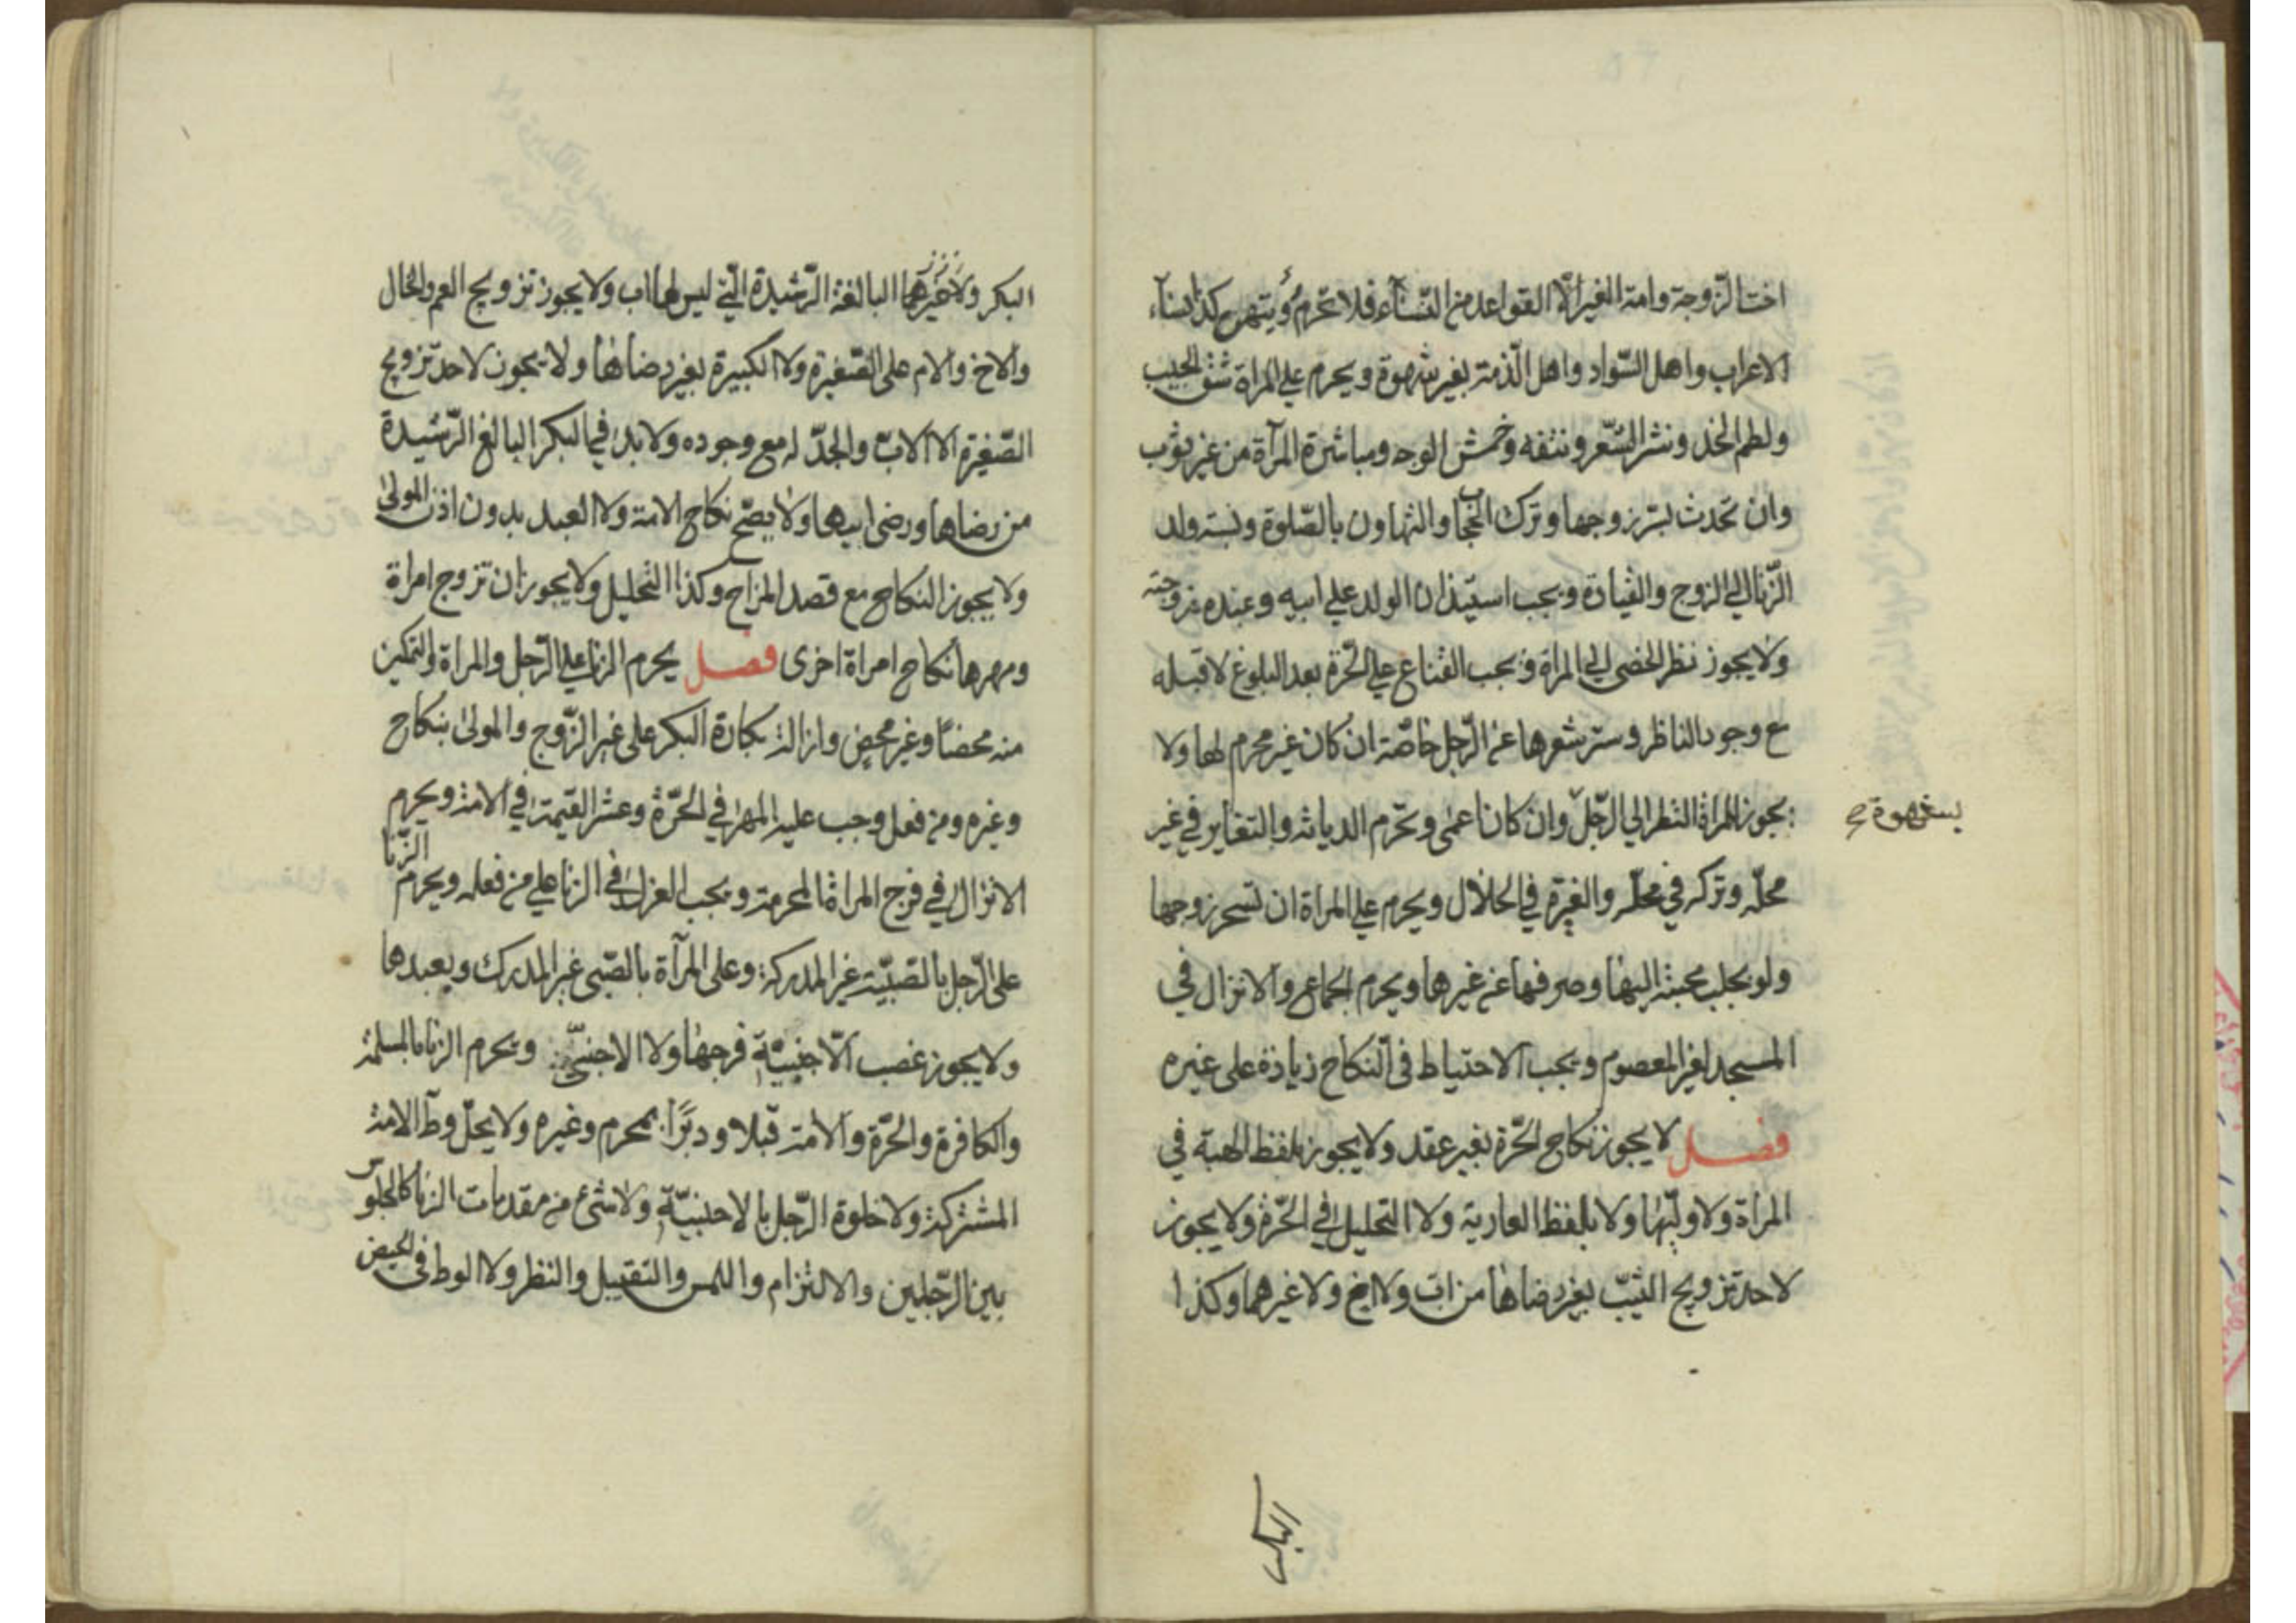 اخت الزّوجة وامة الغير الّا القواعد من النّسآء فلا تحرم رؤيتهن كذا نسآء
الاعراب واهل السّواد واهل الذّمة بغير شهوة ويحرم على المراة شق الجيب
ولطم الخد ونشر الشّعر ونتفه وخمش الوجه ومباشرة المرآة من غير ثوب
وان تحدث بسّر زوجها وترك الحجاب والتهاون بالصّلوة ونسبة ولد
الزّنا الى الزوج والقيادة ويجب استيذان الولد على ابيه وعنده زوجته
ولا يجوز نظر الخصى الى المراة ويجب القناع على الحّرة بعد البلوغ لا قبله
مع وجود الناظر وستر شعرها عن الرّجل خاصّة ان كان غير محرم لها ولا
يجوز للمراة النظر الى الرّجل وان كان اعمى ويحّرم الدياثة والتغاير في غير
محلّه وتركه في محلّه والغيرة في الحلال ويحرم على المراة ان تسحر زوجها
ولو بجلب محبته اليها وصرفها عن غيرها ويحرم الجماع والانزال في
المسجد لغير المعصوم ويجب الاحتياط فى النّكاح زيادة على غيره
فصل لا يجوز نكاح الحّرة بغير عقد ولا يجوز بلفظ الهبة في
المراة ولا وليّها ولا بلفظ العارية ولا التحليل في الحّرة ولا يجوز
لاحد تزويج الثيّب بغير رضاها من اب ولا اخ ولا غيرهما وكذا
البكر
البكر ولا غيرهما البالغة الرّشيدة الّتي ليس لها اب ولا يجوز تزويج العم والخال
والاخ والام على الصّغيرة ولا الكبيرة بغير رضاها ولا يجوز لاحد تزويج
الصّغيرة الا الابّ والجدّ له مع وجوده ولا بد في البكر البالغ الرّشيدة
من رضاها ورضى ابيها ولا يصّح نكاح الامة ولا العبد بدون اذن المولى
ولا يجوز النكاح مع قصد المزاح وكذا التحليل ولا يجوز ان تزوج امراة
ومهرها نكاح امراة اخرى فصل يحرم الزنا على الرّجل والمراة والتمكين
منه محصنًا وغير محصن وازالة بكارة البكر على غير الزّوج والمولى بنكاح
وغيره ومن فعل وجب عليه المهر في الحّرة وعشر القيمة في الامة ويحرم
الانزال في فرج المراة المحرمة ويجب العزل في الزنا على من فعله ويحرم الزّنا
على الرّجل بالصّبيّة غير المدركة وعلى المرآة بالصّبى غير المدرك وبعبدها
ولا يجوز غصب الاجنبيّة فرجها ولا الاجنبىّ ويحرم الزنا بالمسلمة
والكافرة والحّرة والامة قبلا ودبرًا بمحرم وغيره ولا يحلّ وطآ الامة
المشتركة ولا خلوة الرّجل بالاجنبيّة ولا شئ من مقدمات الزنا كالجلوس
بين الرّجلين والالتزام واللمس والتقبيل والنظر ولا الوطا فى الحيض